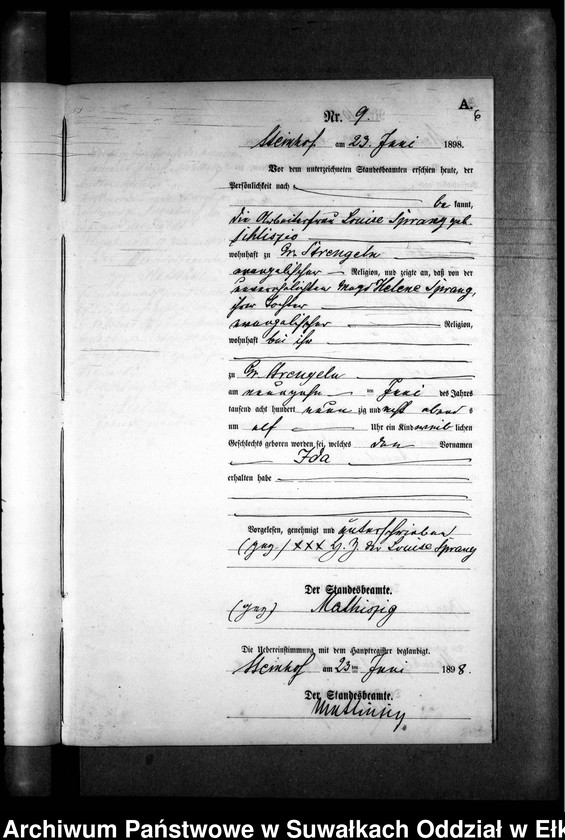 A.
6
Nr. 9.
Steinhof am 23. Juni 1898.
Vor dem unterzeichneten Standesbeamten erschien heute, der
Persönlichkeit nach
be kannt,
die Arbeiterfrau Louise Sprang geb.
Schliszio
wohnhaft zu Gr. Strengeln
evangelischer Religion, und zeigte an, daß von der
unverehelichten Magd Helene Sprang,
ihrer Tochter
evangelischer Religion,
wohnhaft bei ihr
zu Gr. Strengeln
am neunzehn im Juni des Jahres
tausend acht hundert neun zig und acht abends
um elf Uhr ein Kind weib lichen
Geschlechts geboren worden sei, welches den Vornamen
Ida
erhalten habe
Vorgelesen, genehmigt und unterschrieben
(gez.) XXX H. Z. der Louise Sprang
Der Standesbeamte.
(gez) Mathiszig
Die Uebereinstimmung mit dem Hauptregister beglaubigt.
Steinhof am 23ten Juni 1898.
Der Standesbeamte.
Mathiszig
Archiwum Państwowe w Suwałkach Oddział w Ełk